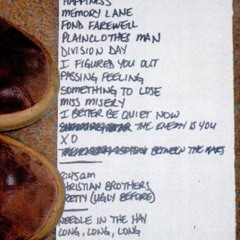 HAPPINESS
MEMORY LANE
FOND FAREWELL
PLAINCLOTHES MAN
DIVISION DAY
I FIGURED YOU OUT
PASSING FEELING
SOMETHING TO LOSE
MISS MISERY
I BETTER BE QUIET NOW
THE ENEMY IS YOU
XO
BETWEEN THE BARS
2:45AM
CHRISTIAN BROTHERS
PRETTY (UGLY BEFORE)
NEEDLE IN THE HAY
LONG, LONG, LONG